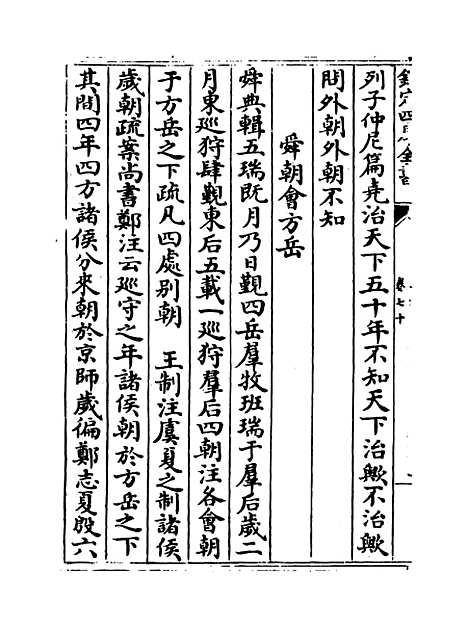 欽定四庫全書
卷七十
列子仲尼篇堯治天下五十年不知天下治歟不治歟
問外朝外朝不知
舜朝會方岳
舜典輯五瑞既月乃日覲四岳羣牧班瑞于羣后歲二
月東巡狩肆覲東后五載一巡狩羣后四朝注各會朝
于方岳之下疏凡四處别朝　王制注虞夏之制諸侯
歲朝疏案尚書鄭注云巡守之年諸侯朝於方岳之下
其間四年四方諸侯分來朝於京師歲徧鄭志夏殷六